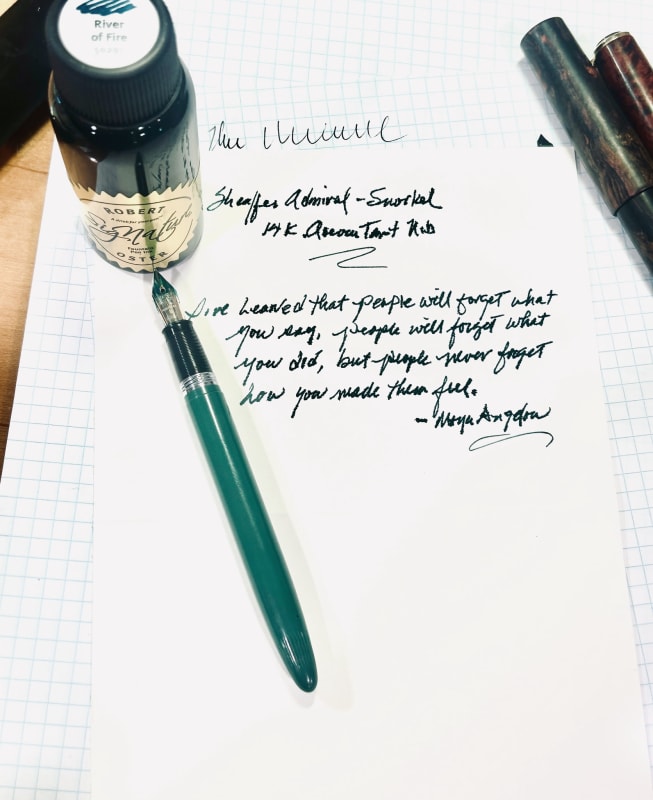 River
of Fire
ROBERT
Signature
Fountain
Pen Ink
OSTER
The
Sheaffer Admiral - Snorkel
14K Accountant Nib
I've learned that people will forget what
you say, people will forget what
you did, but people never forget
how you made them feel.
- Maya Angelou